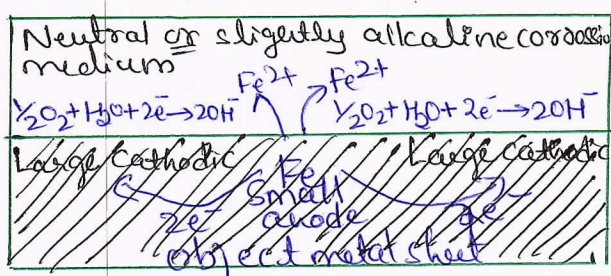 Neutral or slightly alkaline corrossion
medium
Fe2+ Fe2+
½O2+H2O+2e⁻→2OH⁻ ½O2+H2O+2e⁻→2OH⁻
Large Cathodic Fe Large Cathodic
small
2e⁻ anode 2e⁻
object metal sheet